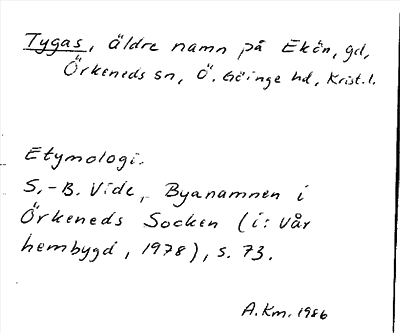 Tygas, äldre namn på Ekön, gd,
Örkeneds sn, Ö. Göinge hd, Krist.l.
Etymologi.
S.-B. Vide, Byanamnen i
Örkeneds Socken (i: Vår
hembygd, 1978), s. 73.
A.Km. 1986